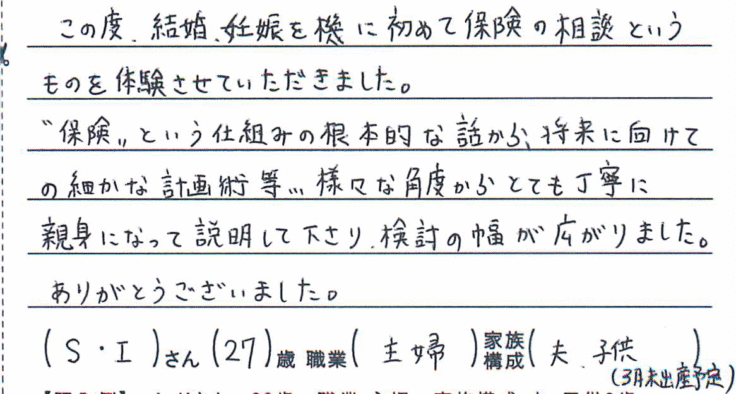 この度、結婚、妊娠を機に初めて保険の相談という
ものを体験させていただきました。
“保険„という仕組みの根本的な話から、将来に向けて
の細かな計画術等… 様々な角度からとても丁寧に
親身になって説明して下さり、検討の幅が広がりました。
ありがとうございました。
(S・I)さん(27)歳 職業(主婦)家族構成(夫、子供)
(3月末出産予定)